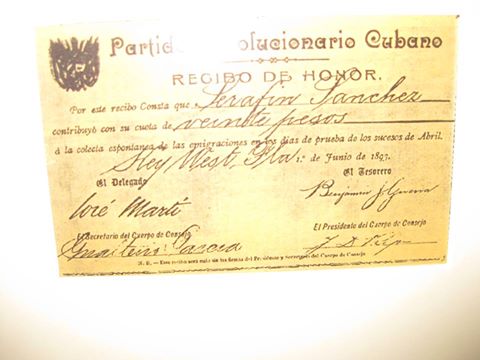 Partid olucionario Cubano
RECIBO DE HONOR.
Por este recibo Consta que Serafin Sanchez
contribuyó con su cuota de veinte pesos
á la colecta espontanea de las emigraciones en los dias de prueba de los sucesos de Abril.
Key West, Fla 1.º de Junio de 1893.
El Delegado El Tesorero
José Martí Benjamin J. Guerra
El Secretario del Cuerpo de Consejo El Presidente del Cuerpo de Consejo
N. B. - Este recibo será nulo sin las firmas del Presidente y Secretario del Cuerpo de Consejo